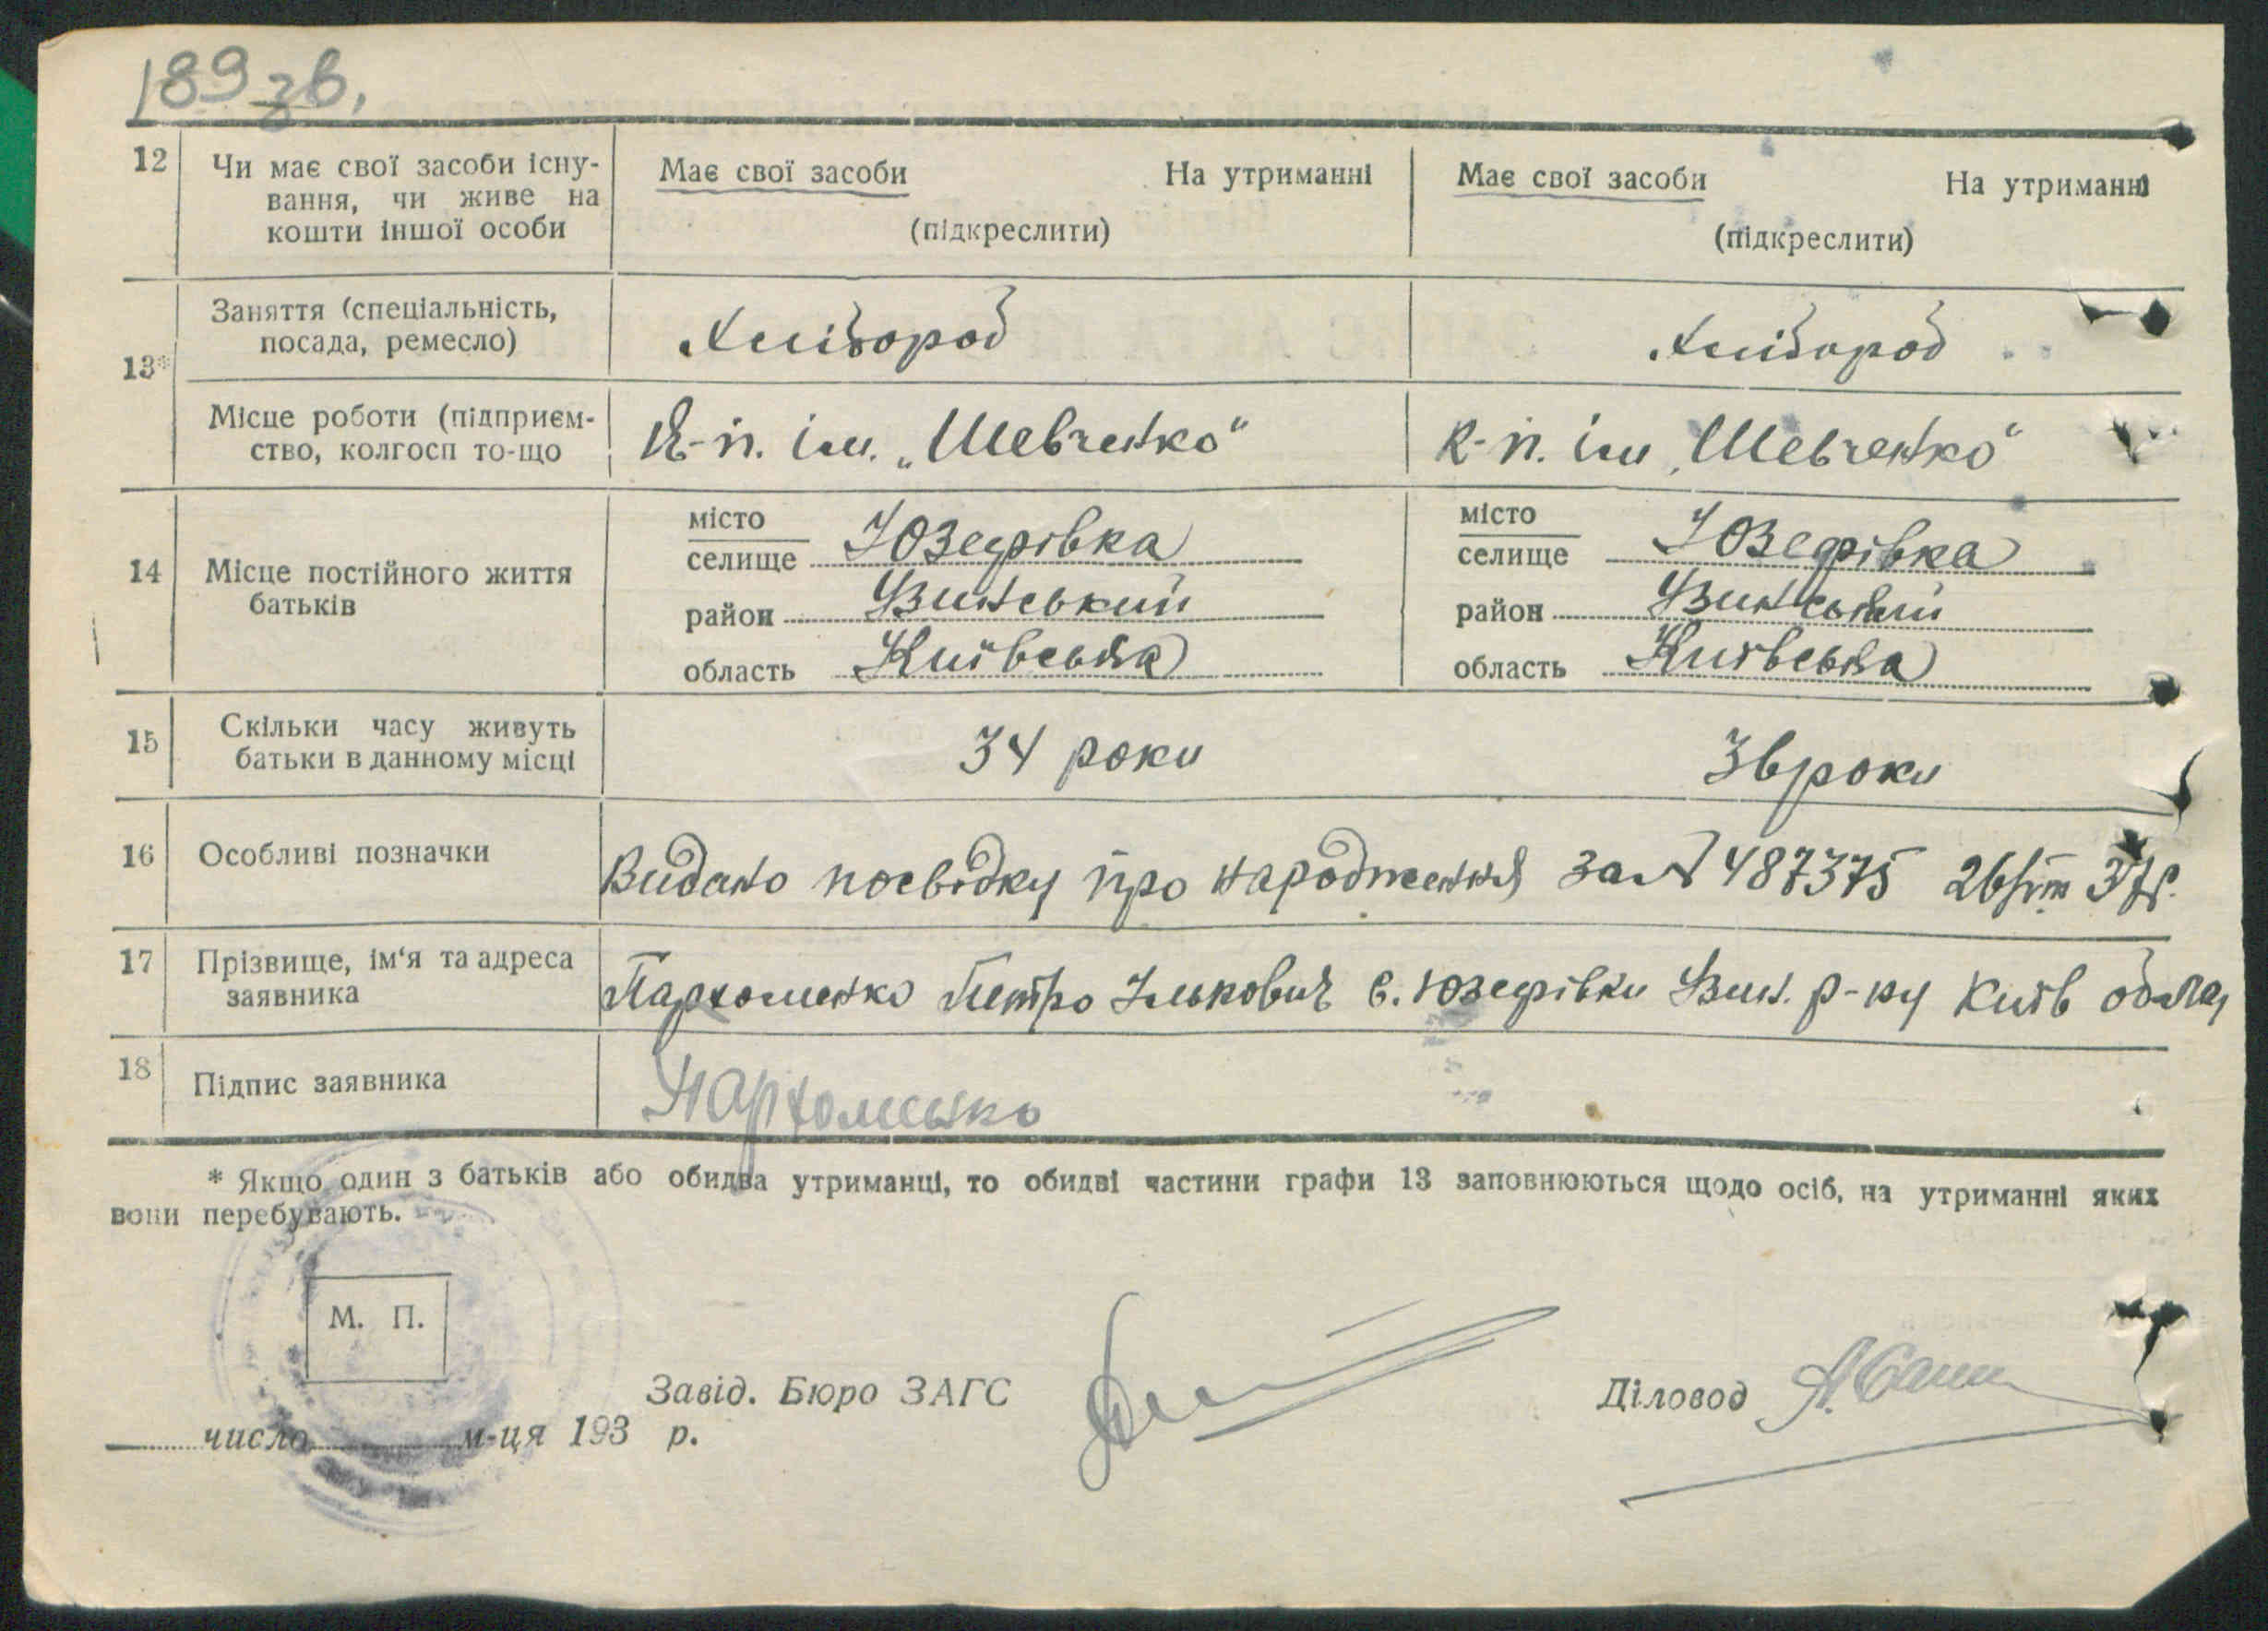 189 зв.
12 Чи має свої засоби існу- Має свої засоби На утриманні Має свої засоби На утриманні
вання, чи живе на
кошти іншої особи (підкреслити) (підкреслити)
13* Заняття (спеціальність, Хлібороб Хлібороб
посада, ремесло)
Місце роботи (підприєм- К-п. ім. „Шевченко“ К-п. ім „Шевченко“
ство, колгосп то-що
14 Місце постійного життя
батьків
місто
селище Юзефівка
район Узинський
область Київська
місто
селище Юзефівка
район Узинський
область Київська
15 Скільки часу живуть 34 роки 36 роки
батьки в данному місці
16 Особливі позначки Видано посвідку про народження за № 487375 26/VIII 37 р.
17 Прізвище, ім‘я та адреса Пархоменко Петро Ількович с. Юзефівки Узин. р-ну Київ обла,
заявника
18 Підпис заявника Пархоменко
* Якщо один з батьків або обидва утриманці, то обидві частини графи 13 заповнюються щодо осіб, на утриманні яких
вони перебувають.
М. П.
Завід. Бюро ЗАГС Діловод
число м-ця 193 р.